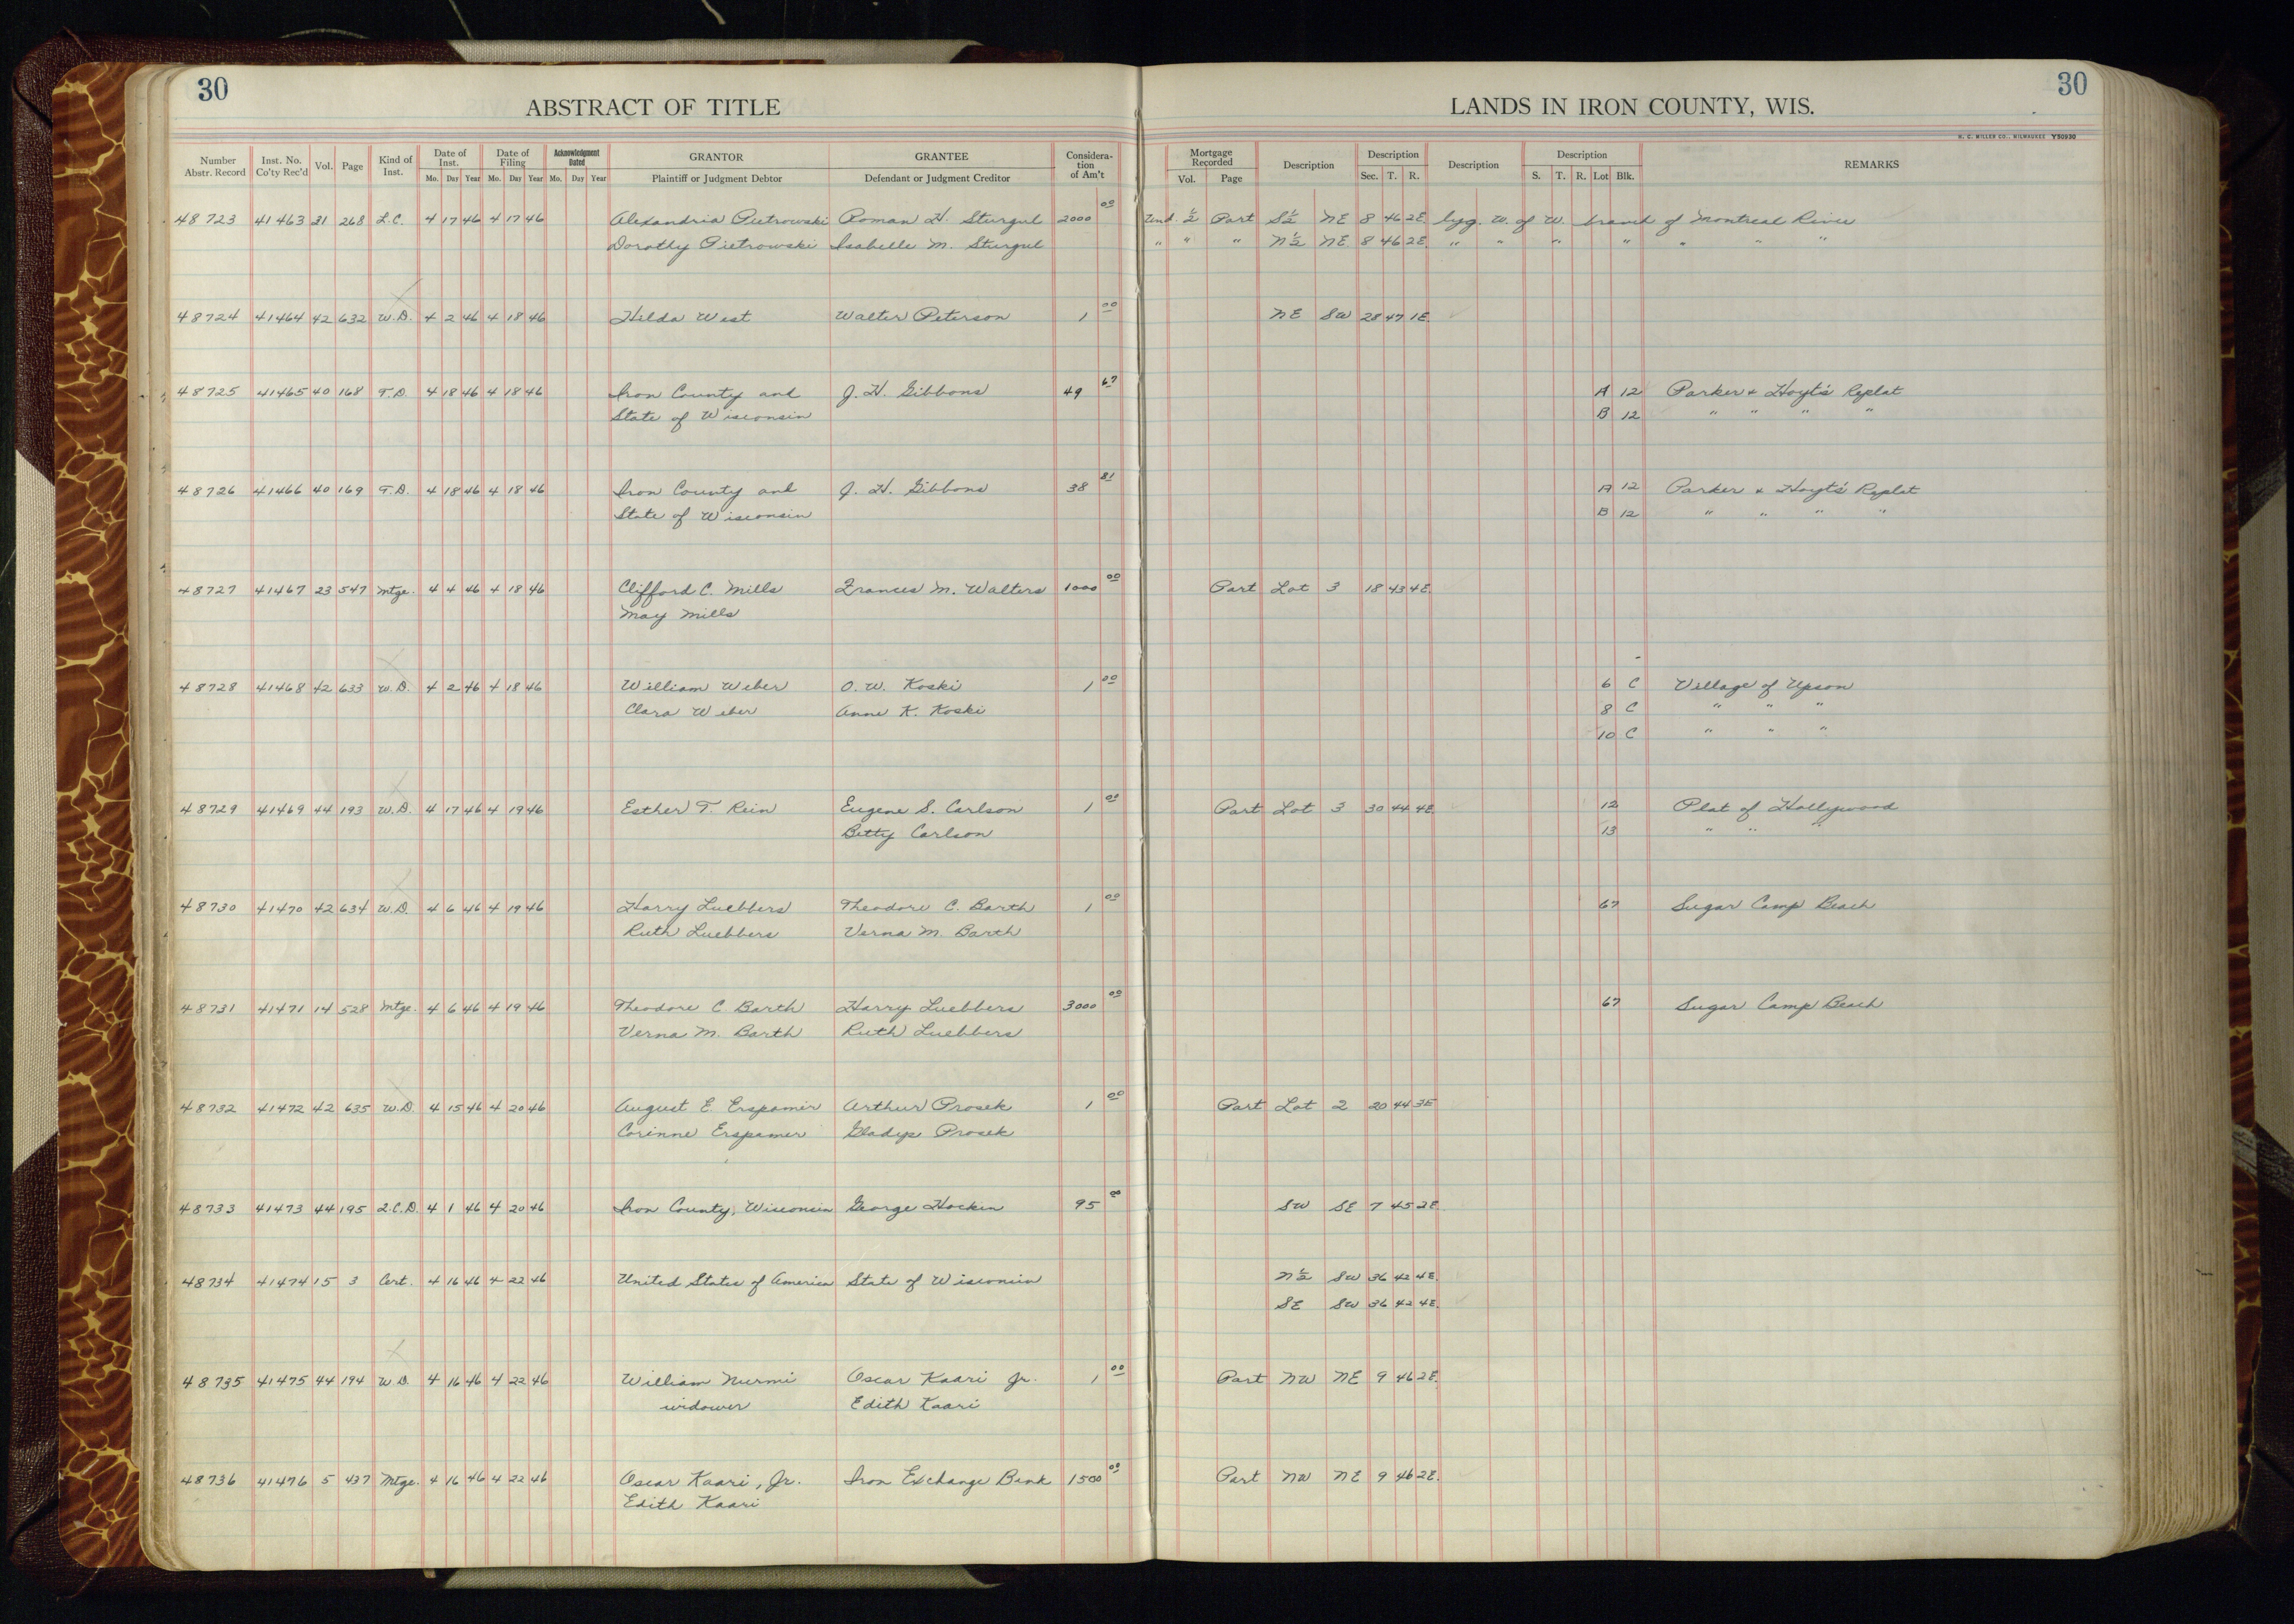 30
30
ABSTRACT OF TITLE
LANDS IN IRON COUNTY, WIS.
H. C. MILLER CO., MILWAUKEE Y50930
Number Abstr. Record Inst. No. Co'ty Rec'd Vol. Page Kind of Inst. Date of Inst. Mo. Day Year Date of Filing Mo. Day Year Acknowledgment Dated Mo. Day Year GRANTOR Plaintiff or Judgment Debtor GRANTEE Defendant or Judgment Creditor Consideration of Am't Mortgage Recorded Vol. Page Description Description Sec. T. R. Description Description S. T. R. Lot Blk. REMARKS
48723 41463 31 268 L.C. 4 17 46 4 17 46 Alexandria Pietrowski Roman H. Sturgul 2000 00 Und. ½ Part S½ NE 8 46 2E. lyg. W. of W. branch of Montreal River
Dorothy Pietrowski Isabelle M. Sturgul " " " N½ NE 8 46 2E " " " " " " "
48724 41464 42 632 W.D. 4 2 46 4 18 46 Hilda West Walter Peterson 1 00 NE SW 28 47 1E.
48725 41465 40 168 T.D. 4 18 46 4 18 46 Iron County and J. H. Gibbons 49 67 A 12 Parker & Hoyt's Replat
State of Wisconsin B 12 " " " "
48726 41466 40 169 T.D. 4 18 46 4 18 46 Iron County and J. H. Gibbons 38 81 A 12 Parker & Hoyt's Replat
State of Wisconsin B 12 " " " "
48727 41467 23 547 Mtge. 4 4 46 4 18 46 Clifford C. Mills Frances M. Walters 1000 00 Part Lot 3 18 43 4E.
May Mills
48728 41468 42 633 W.D. 4 2 46 4 18 46 William Weber O. W. Koski 1 00 6 C Village of Upson
Clara Weber Anne K. Koski 8 C " " "
10 C " " "
48729 41469 44 193 W.D. 4 17 46 4 19 46 Esther T. Rein Eugene S. Carlson 1 00 Part Lot 3 30 44 4E 12 Plat of Hollywood
Betty Carlson 13 " " "
48730 41470 42 634 W.D. 4 6 46 4 19 46 Harry Luebbers Theodore C. Barth 1 00 67 Sugar Camp Beach
Ruth Luebbers Verna M. Barth
48731 41471 14 528 Mtge. 4 6 46 4 19 46 Theodore C Barth Harry Luebbers 3000 00 67 Sugar Camp Beach
Verna M. Barth Ruth Luebbers
48732 41472 42 635 W.D. 4 15 46 4 20 46 August E. Erspamer Arthur Prosek 1 00 Part Lot 2 20 44 3E
Corinne Erspamer Gladys Prosek
48733 41473 44 195 Q.C.D. 4 1 46 4 20 46 Iron County, Wisconsin George Hocken 95 00 SW SE 7 45 2E.
48734 41474 15 3 Cert. 4 16 46 4 22 46 United States of America State of Wisconsin N½ SW 36 42 4E.
SE SW 36 42 4E.
48735 41475 44 194 W.D. 4 16 46 4 22 46 William Nurmi Oscar Kaari Jr. 1 00 Part NW NE 9 46 2E.
widower Edith Kaari
48736 41476 5 437 Mtge. 4 16 46 4 22 46 Oscar Kaari, Jr. Iron Exchange Bank 1500 00 Part NW NE 9 46 2E.
Edith Kaari